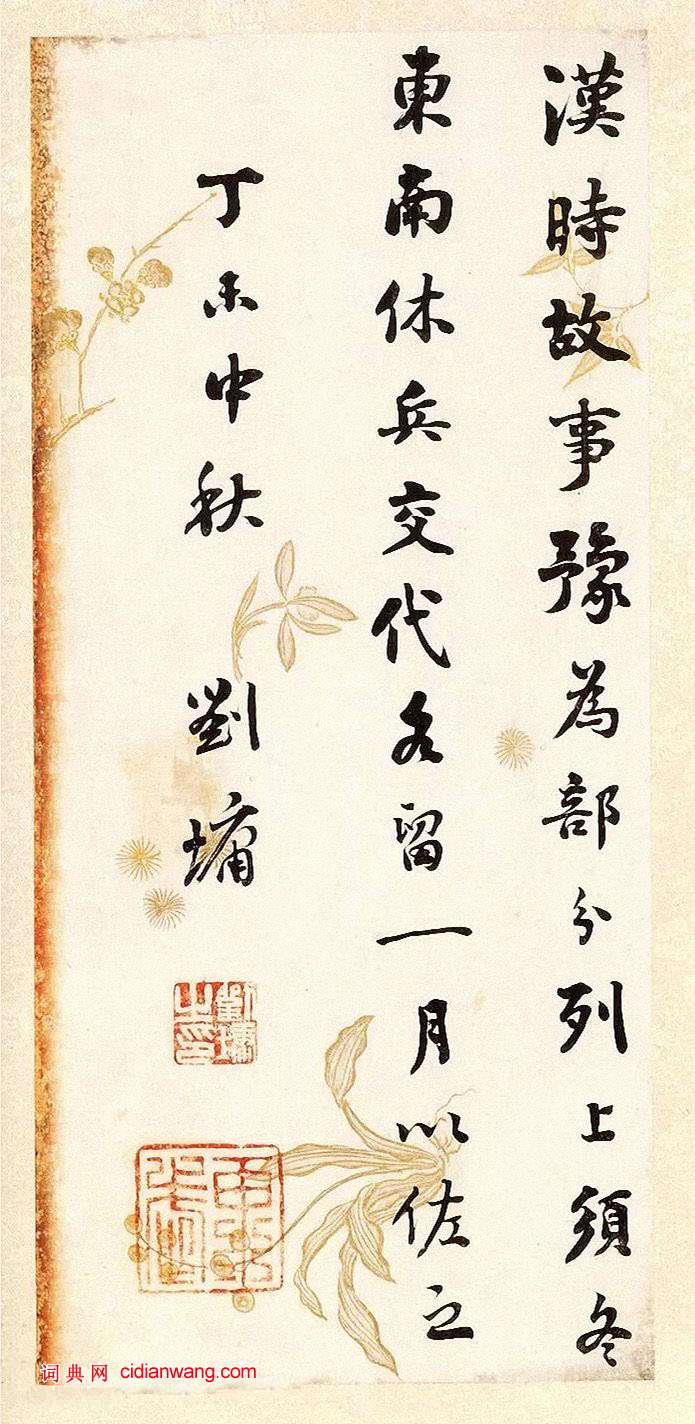 漢時故事豫為部分列上須冬
東南休兵交代各留一月以佐之
丁未中秋 劉墉
劉墉之印
词典网 cidianwang.com